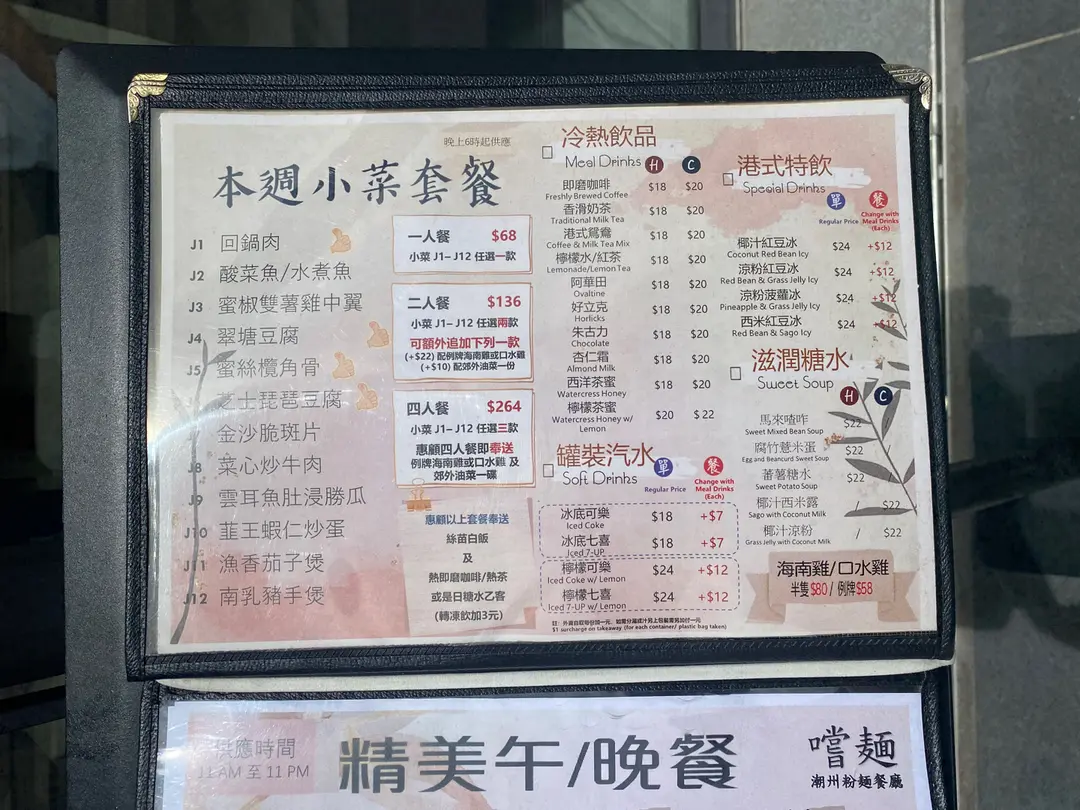 晚上6時起供應
本週小菜套餐
J1 回鍋肉
J2 酸菜魚/水煮魚
J3 蜜椒雙薯雞中翼
J4 翠塘豆腐
J5 蜜絲欖角骨
芝士琵琶豆腐
金沙脆斑片
J8 菜心炒牛肉
J9 雲耳魚肚浸勝瓜
J10 韮王蝦仁炒蛋
J11 漁香茄子煲
J12 南乳豬手煲
一人餐 $68
小菜 J1– J12 任選一款
二人餐 $136
小菜 J1– J12 任選兩款
可額外追加下列一款
(+$22) 配例牌海南雞或口水雞
(+$10) 配郊外油菜一份
四人餐 $264
小菜 J1– J12 任選三款
惠顧四人餐即奉送
例牌海南雞或口水雞 及
郊外油菜一碟
惠顧以上套餐奉送
絲苗白飯
及
熱即磨咖啡/熱茶
或是日糖水乙客
(轉凍飲加3元)
冷熱飲品
Meal Drinks H C
即磨咖啡 $18 $20
Freshly Brewed Coffee
香滑奶茶 $18 $20
Traditional Milk Tea
港式鴛鴦 $18 $20
Coffee & Milk Tea Mix
檸檬水/紅茶 $18 $20
Lemonade/Lemon Tea
阿華田 $18 $20
Ovaltine
好立克 $18 $20
Horlicks
朱古力 $18 $20
Chocolate
杏仁霜 $18 $20
Almond Milk
西洋茶蜜 $18 $20
Watercress Honey
檸檬茶蜜 $20 $ 22
Watercress Honey w/
Lemon
罐裝汽水 單 餐
Soft Drinks Regular Price Change with
Meal Drinks
(Each)
冰底可樂 $18 +$7
Iced Coke
冰底七喜 $18 +$7
Iced 7-UP
檸檬可樂 $24 +$12
Iced Coke w/ Lemon
檸檬七喜 $24 +$12
Iced 7-UP w/ Lemon
註: 外賣自取每份加一元, 如需分湯或汁另上包裝需另加付一元
$1 surcharge on takeaway (for each container/ plastic bag taken)
港式特飲
Special Drinks
單 餐
Regular Price Change with
Meal Drinks
(Each)
椰汁紅豆冰 $24 +$12
Coconut Red Bean Icy
涼粉紅豆冰 $24 +$12
Red Bean & Grass Jelly Icy
涼粉菠蘿冰 $24 +$12
Pineapple & Grass Jelly Icy
西米紅豆冰 $24 +$12
Red Bean & Sago Icy
滋潤糖水
Sweet Soup
H C
馬來喳咋 $22
Sweet Mixed Bean Soup
腐竹薏米蛋 $22
Egg and Beancurd Sweet Soup
蕃薯糖水 $22
Sweet Potato Soup
椰汁西米露 / $22
Sago with Coconut Milk
椰汁涼粉 / $22
Grass Jelly with Coconut Milk
海南雞/口水雞
半隻$80 / 例牌$58
供應時間
11 AM 至 11 PM
精美午/晚餐
嚐麵
潮州粉麵餐廳